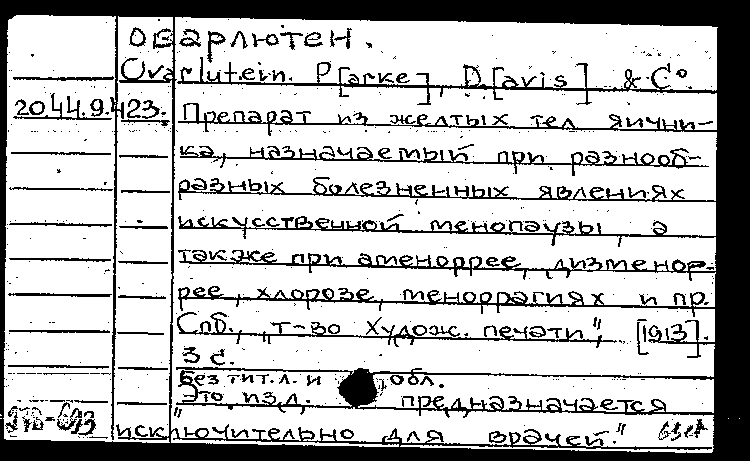 Оварлютен.
Ovarlutein. P[arke], D.[avis] & C°
20.44.9.423. Препарат из желтых тел яични-
ка, назначаемый при разнооб-
разных болезненных явлениях
искусственной менопаузы, а
также при аменоррее, дизменор-
рее, хлорозе, меноррагиях и пр.
Спб., "т-во Худож. печати", [1913].
3 с.
Без тит.л. и обл.
"Это изд. предназначается
исключительно для врачей."